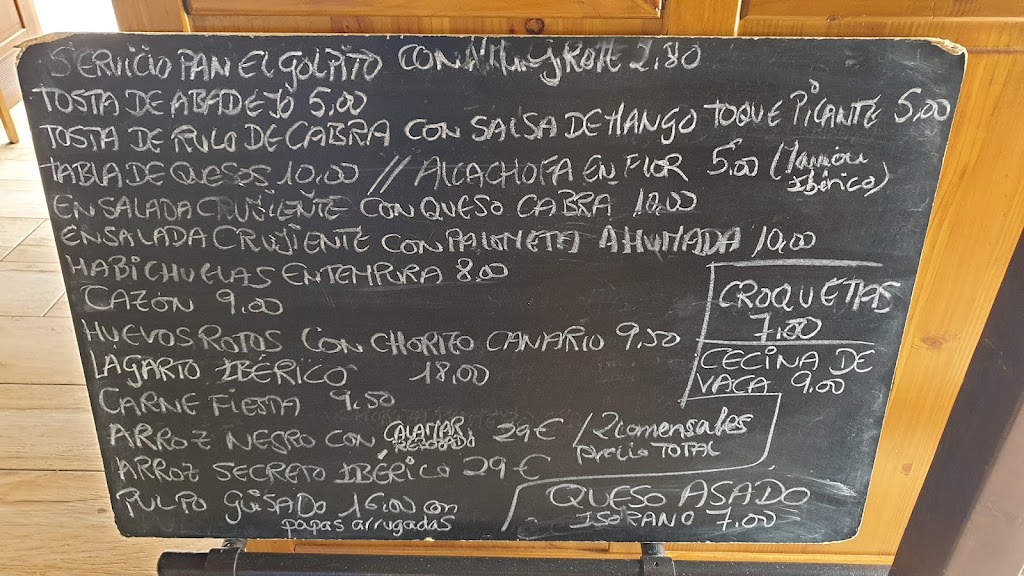 SERVICIO PAN EL GOLPITO CON 2.80
TOSTA DE ABADEJO 5,00
TOSTA DE RULO DE CABRA CON SALSA DE MANGO TOQUE PICANTE 5,00
TABLA DE QUESOS 10,00 // ALCACHOFA EN FLOR 5,00 (Jamón
IBÉRICO)
ENSALADA CRUJIENTE CON QUESO CABRA 10,00
ENSALADA CRUJIENTE CON PALOMETA AHUMADA 10,00
HABICHUELAS EN TEMPURA 8,00
CAZON 9,00
HUEVOS ROTOS CON CHORIZO CANARIO 9,50
LAGARTO IBÉRICO 18,00
CARNE FIESTA 9,50
CROQUETAS
7,00
CECINA DE
VACA 9,00
ARROZ NEGRO CON CALAMAR REBOZADO 29€ / 2 comensales
precio TOTAL
ARROZ SECRETO IBÉRICO 29€
PULPO GUISADO 16,00 con
papas arrugadas
QUESO ASADO
ISORANO 7,00